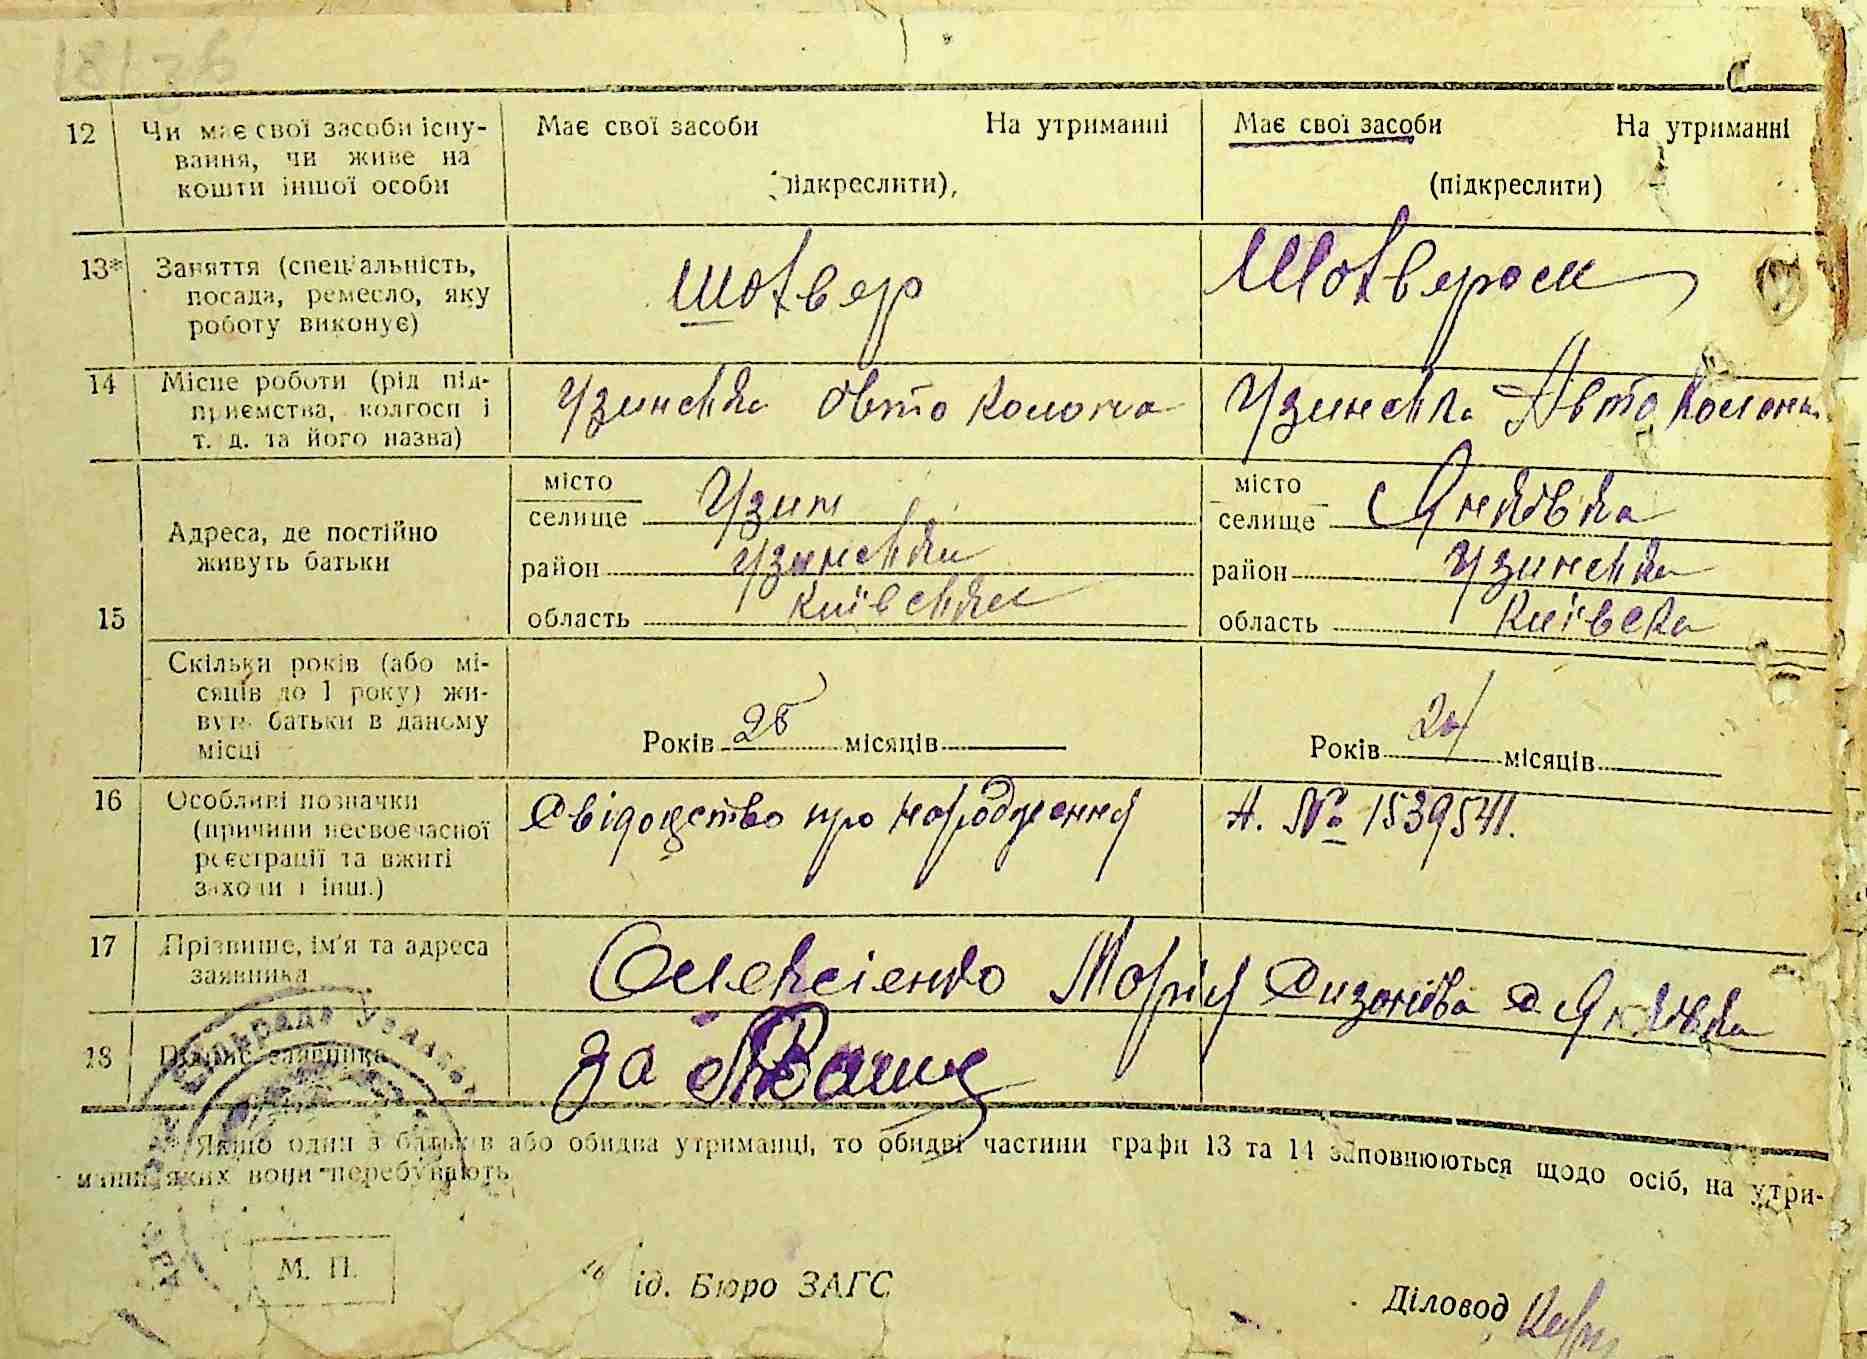 12 Чи має свої засоби існу- Має свої засоби На утриманні Має свої засоби На утриманні
вання, чи живе на
кошти іншої особи (підкреслити), (підкреслити)
13* Заняття (спеціальність, шофер Шофером
посада, ремесло, яку
роботу виконує)
14 Місце роботи (рід під- Узинська Автоколона Узинська Автоколона
приємства, колгосп і
т. д. та його назва)
15 Адреса, де постійно живуть батьки
місто
селище Узин
район Узинська
область Київська
місто
селище с Янківка
район Узинська
область Київска
Скільки років (або мі-
сяців до 1 року) жи-
вуть батьки в даному
місці
Років 25 місяців Років місяців
16 Особливі позначки Свідоцтво про народження А. № 1539541.
(причини несвоєчасної
реєстрації та вжиті
заходи і інш.)
17 Прізвище, ім'я та адреса Олексієнко Марія с Янківка
заявника
18 Підпис заявника за
* Якщо один з батьків або обидва утриманці, то обидві частини графи 13 та 14 заповнюються щодо осіб, на утри-
манні яких вони перебувають
М. П.
ід. Бюро ЗАГС
Діловод